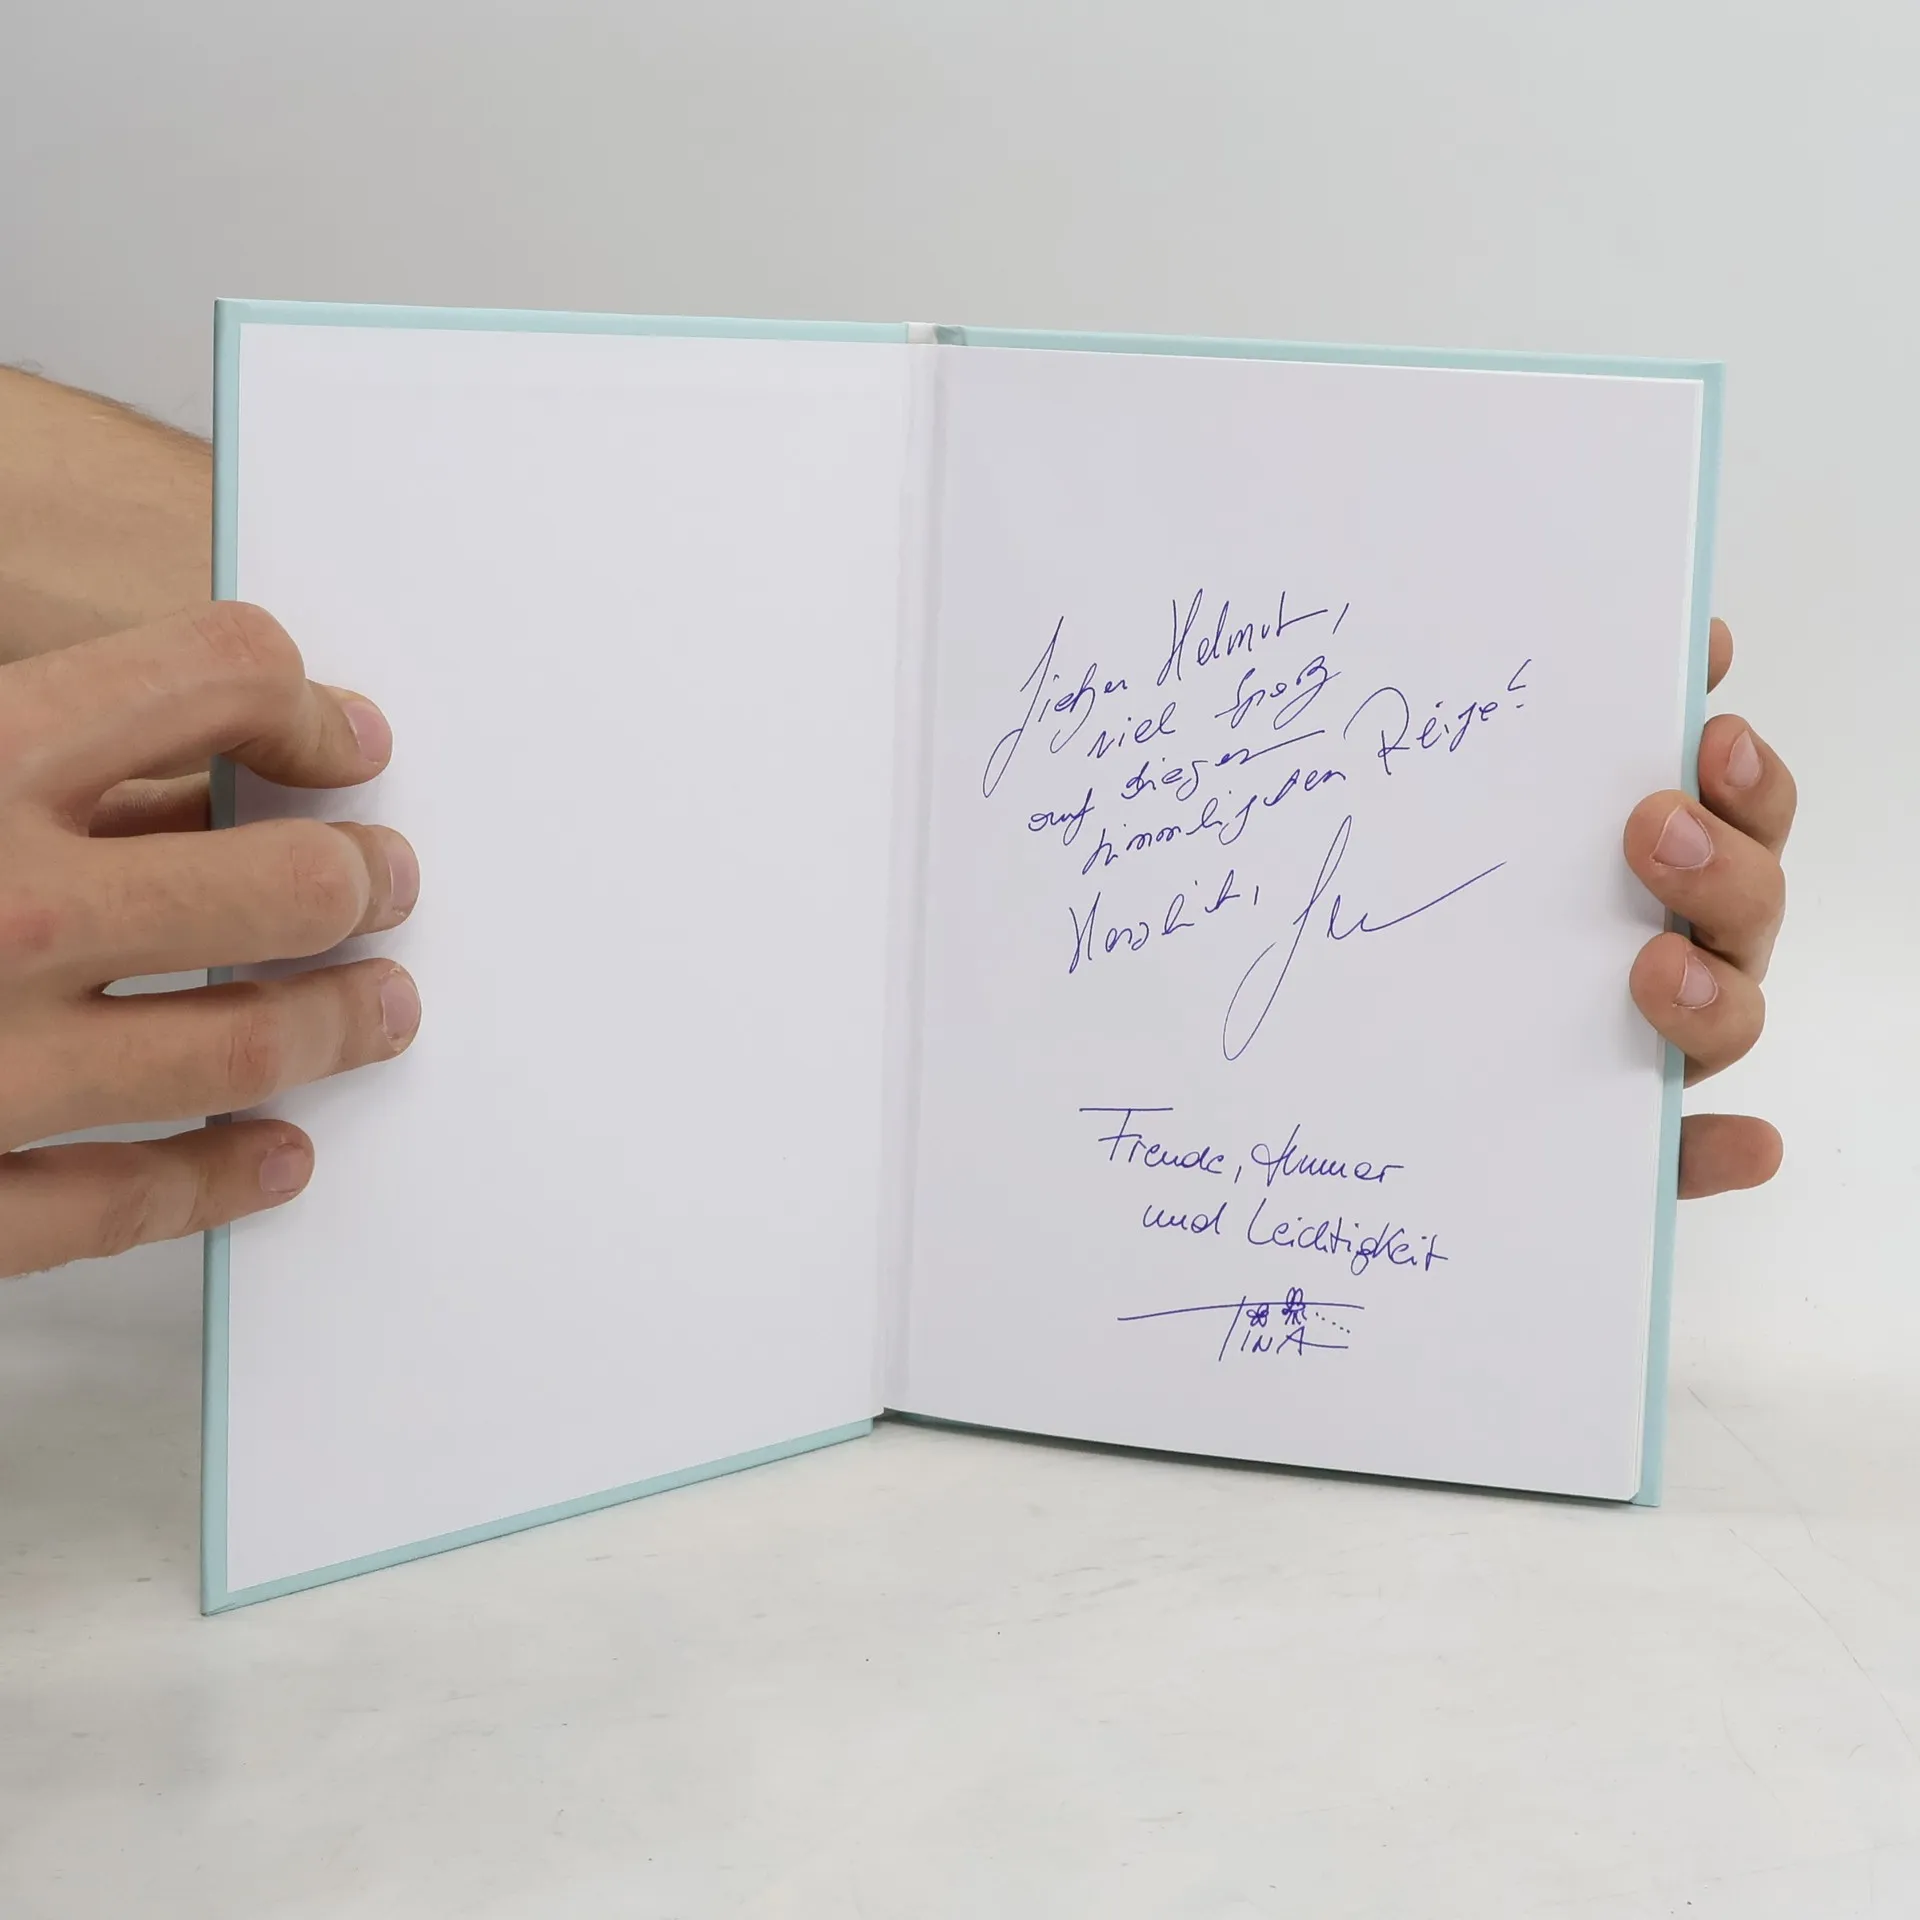 Lieber Helmut,
viel Spaß
auf dieser
himmlischen Reise!
Herzlichst,
Freude, Humor
und Leichtigkeit
TINA